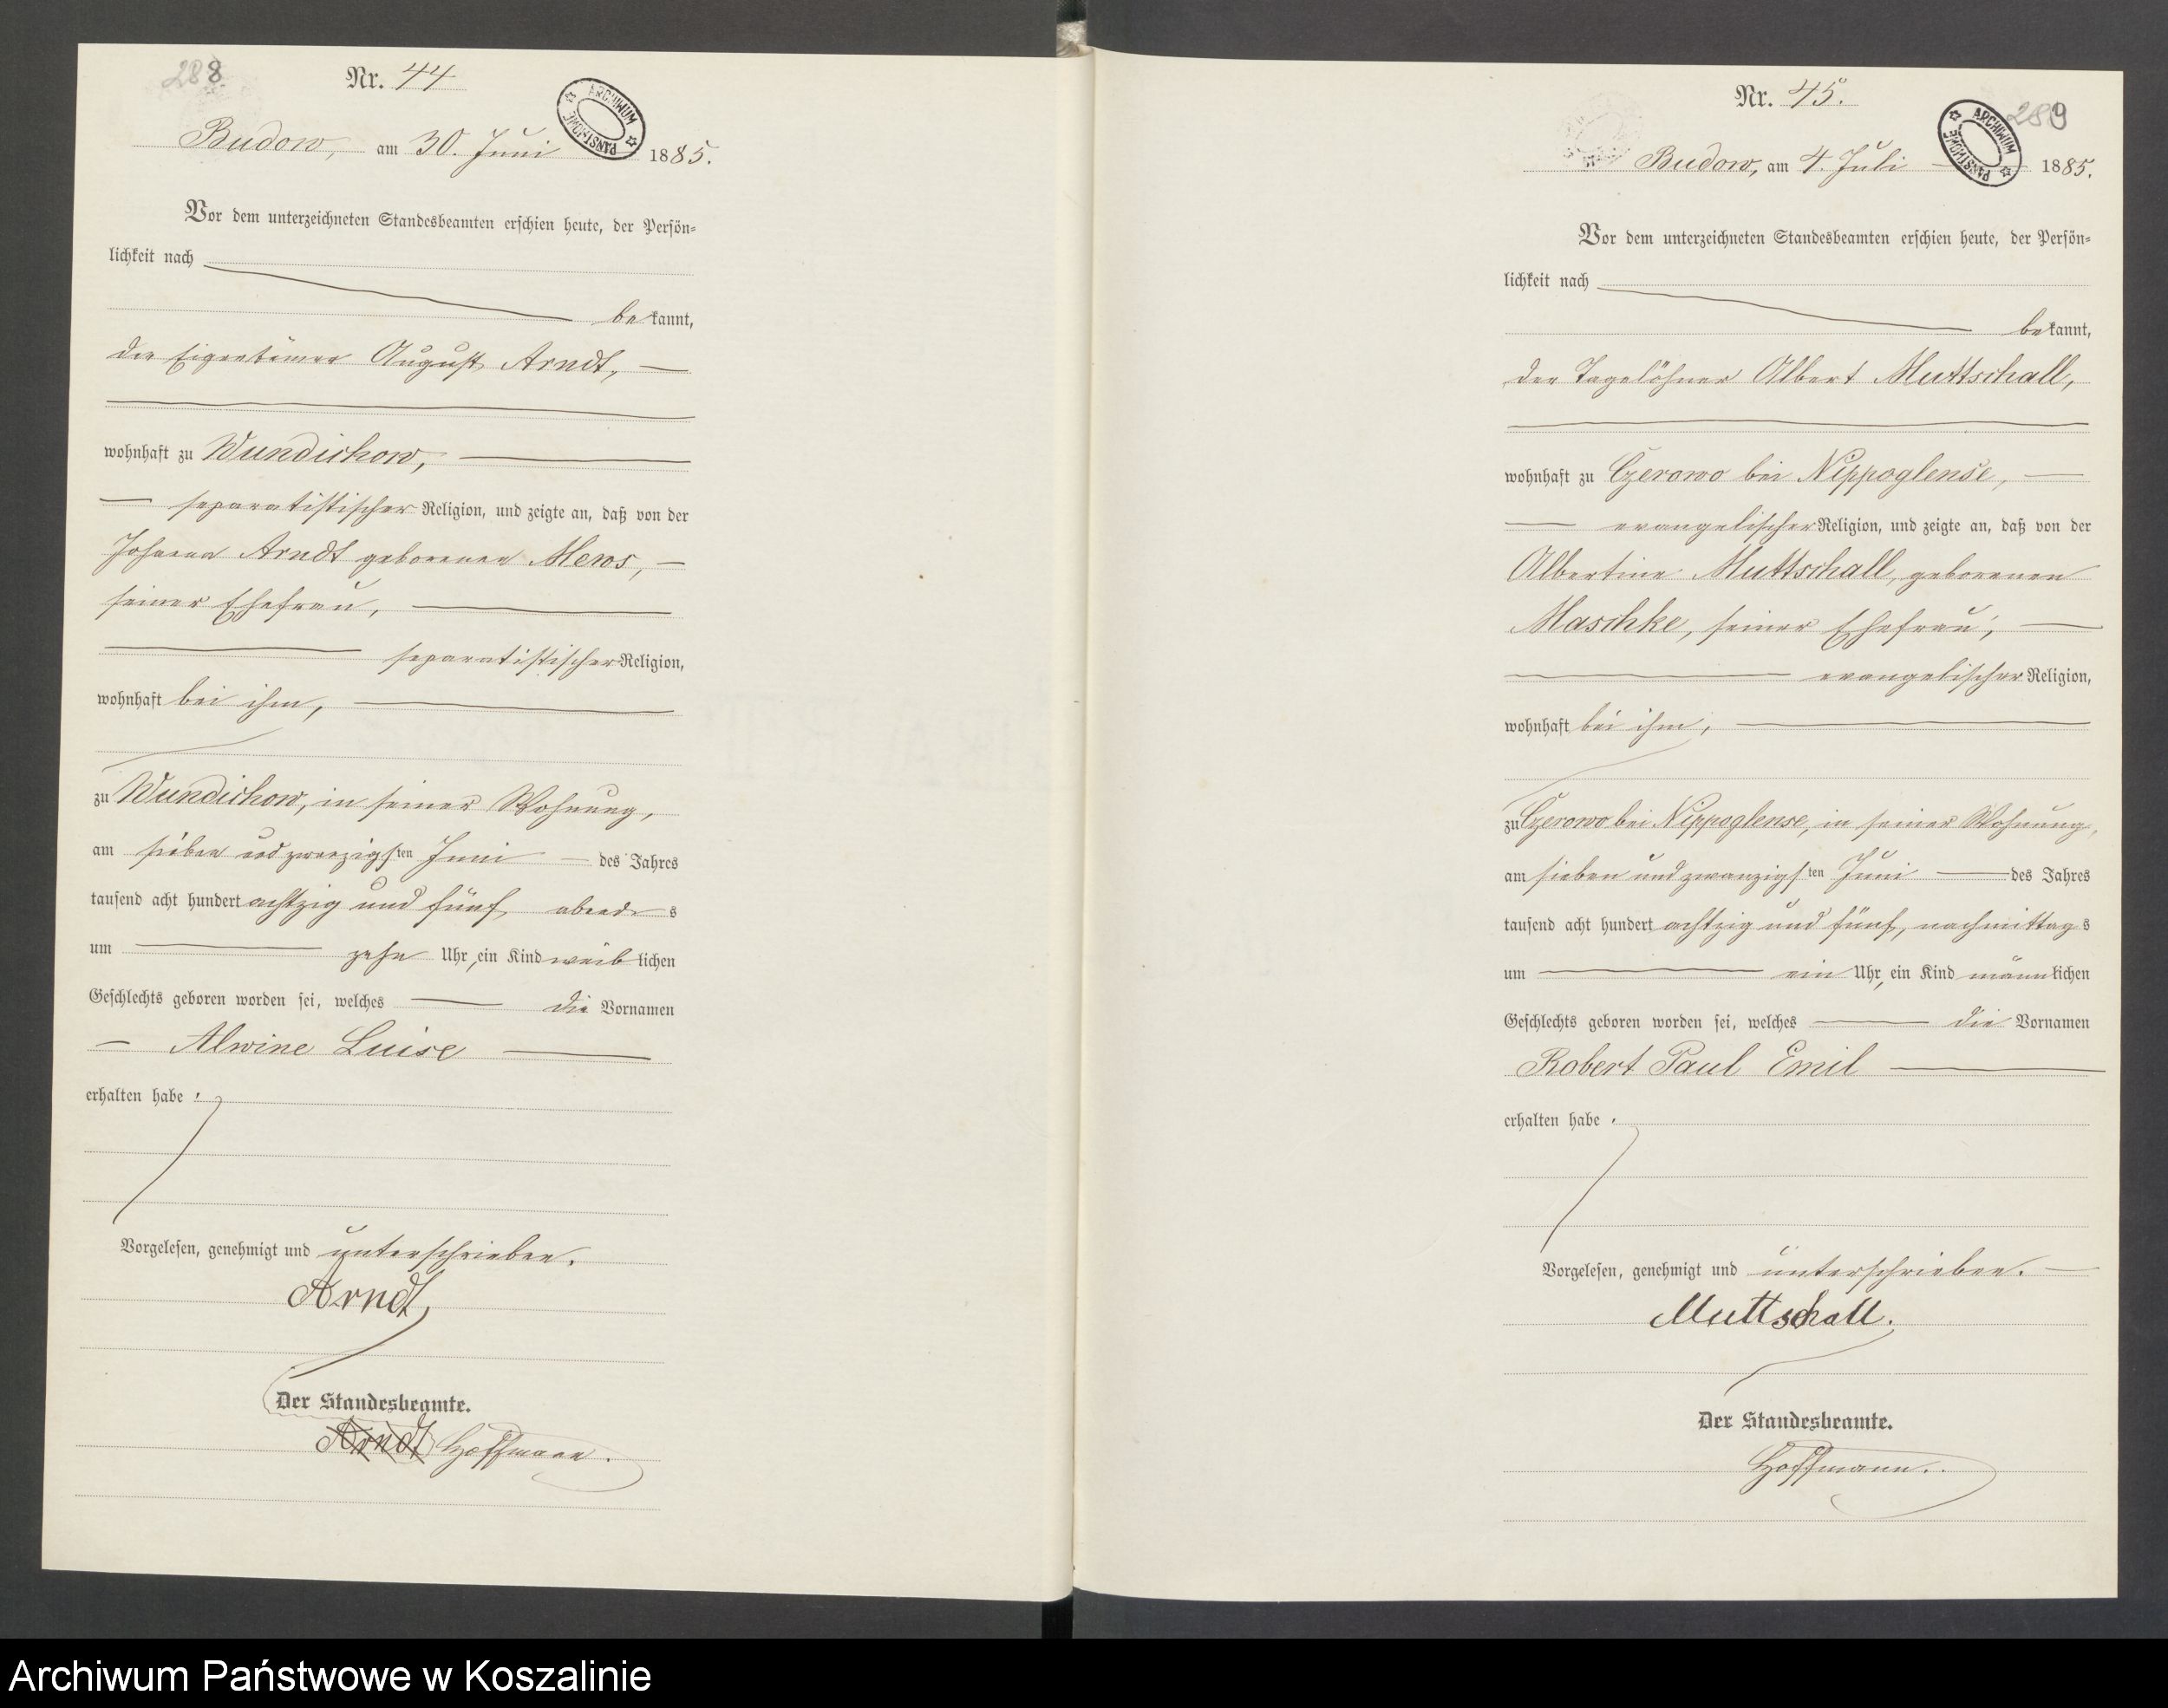 288
Nr. 44
ARCHIWUM PAŃSTWOWE
Budow, am 30. Juni 1885.
Vor dem unterzeichneten Standesbeamten erschien heute, der Persön-
lichkeit nach
bekannt,
der Eigentümer August Arndt,
wohnhaft zu Wundichow,
separatistischer Religion, und zeigte an, daß von der
Johanna Arndt geborenen Mews,
seiner Ehefrau,
separatistischer Religion,
wohnhaft bei ihm,
zu Wundichow, in seiner Wohnung,
am sieben und zwanzigsten Juni des Jahres
tausend acht hundert achtzig und fünf, abends
um zehn Uhr, ein Kind weiblichen
Geschlechts geboren worden sei, welches die Vornamen
Alwine Luise
erhalten habe.
Vorgelesen, genehmigt und unterschrieben.
Arndt
Der Standesbeamte.
Arndt Hoffmann.
289
Nr. 45.
ARCHIWUM PAŃSTWOWE
Budow, am 4. Juli 1885.
Vor dem unterzeichneten Standesbeamten erschien heute, der Persön-
lichkeit nach
bekannt,
der Tagelöhner Albert Muttschall,
wohnhaft zu Czerowo bei Nippoglense,
evangelischer Religion, und zeigte an, daß von der
Albertine Muttschall, geborenen
Maschke, seiner Ehefrau,
evangelischer Religion,
wohnhaft bei ihm,
zu Czerowo bei Nippoglense, in seiner Wohnung,
am sieben und zwanzigsten Juni des Jahres
tausend acht hundert achtzig und fünf, nachmittags
um ein Uhr, ein Kind männlichen
Geschlechts geboren worden sei, welches die Vornamen
Robert Paul Emil
erhalten habe.
Vorgelesen, genehmigt und unterschrieben.
Muttschall.
Der Standesbeamte.
Hoffmann.
Archiwum Państwowe w Koszalinie